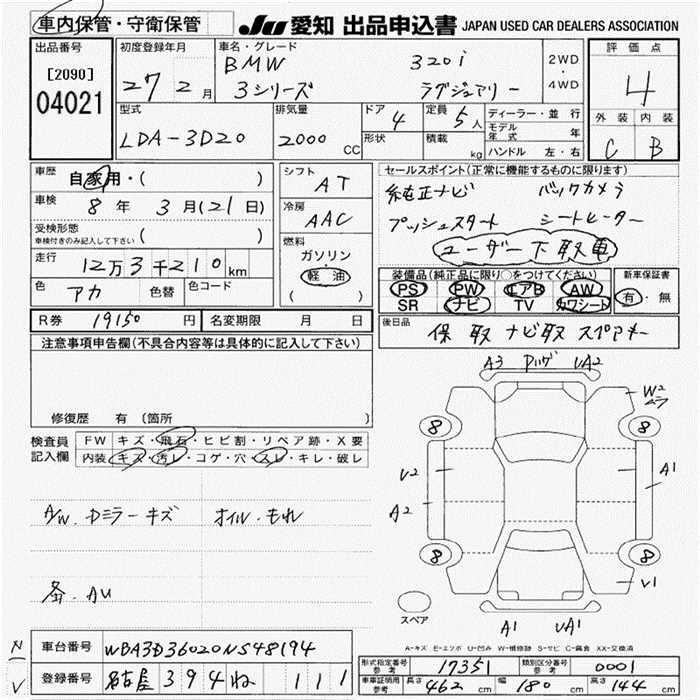 車内保管・守衛保管
JU 愛知 出品申込書 JAPAN USED CAR DEALERS ASSOCIATION
出品番号 [2090] 04021
初度登録年月 27 2月
車名・グレード BMW 320i
3シリーズ ラグジュアリー
2WD・4WD
評価点 4
外装 内装
C B
型式 LDA-3D20
排気量 2000 CC
ドア 4
形状
定員 5人
積載 kg
ディーラー・並行
モデル年式 年
ハンドル 左・右
車歴 自家用・( )
車検 8年 3月(21日)
受検形態 車検付きのみ記入して下さい ( )
走行 12万3千210km
色 アカ 色替 色コード
シフト AT
冷房 AAC
燃料 ガソリン・軽油 ( )
セールスポイント(正常に機能するものに限ります)
純正ナビ バックカメラ
プッシュスタート シートヒーター
ユーザー下取車
装備品(純正品に限り○をつけてください)
PS PW エアB AW
SR ナビ TV カワシート
新車保証書 有・無
R券 19150円 名変期限 月 日
後日品 保 取 ナビ取 スペアキー
注意事項申告欄(不具合内容等は具体的に記入して下さい)
修復歴 有 (箇所 )
検査員記入欄
FW キズ・飛石・ヒビ割・リペア跡・X要
内装 キズ・汚レ・コゲ・穴・スレ・キレ・破レ
A/W.Dミラーキズ オイル・もれ
各.AU
A3 UA2
W2
8 8
U2 A1
A2
8 8
V1
スペア
A1 UA1
A-キズ E-エクボ U-凹み W-補修跡 S-サビ C-腐食 XX-交換済
N/V
車台番号 WBA3D36020NS48194
登録番号 名古屋 394 ね 111
型式指定番号 参考 17351 類別区分番号 参考 0001
車庫証明用 参考 長さ 462 cm 幅 180 cm 高さ 144 cm